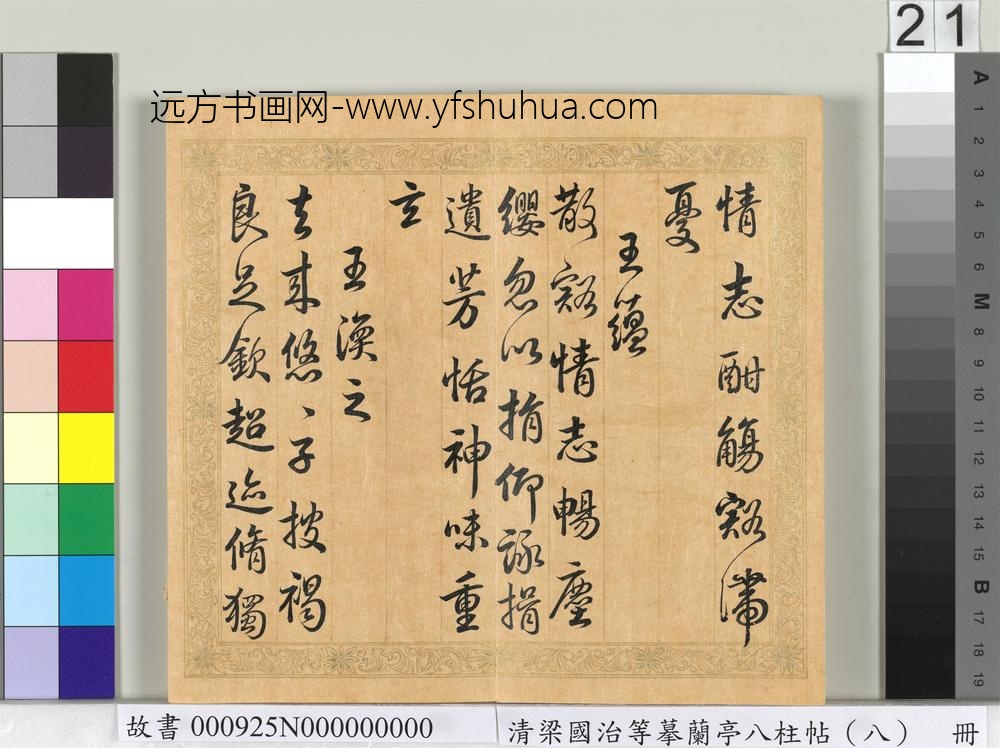 21
远方书画网-www.yfshuhua.com
情志酣觴豁滯
憂
王蘊
散豁情志暢塵
纓忽以捐仰詠揖
遺芳恬神味重
玄
王渙之
去來悠〻子披褐
良足欽超迹脩獨
A
1
2
3
4
5
6
M
8
9
10
11
12
13
14
15
B
17
18
19
故書 000925N000000000
清梁國治等摹蘭亭八柱帖（八） 冊